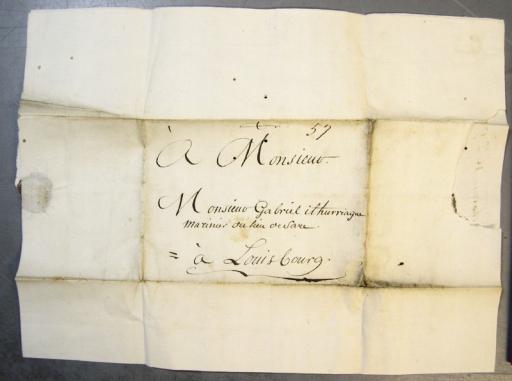 57
À Monsieur
Monsieur Gabriel ithurriague
marinier du lieu de Sare
= à Louisbourg.